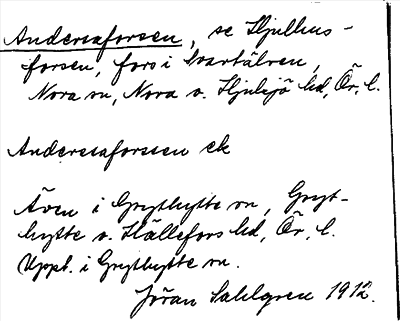 Andersaforsen, se Hjulhus-
forsen, fors i Svartälven,
Nora sn, Nora o. Hjulsjö hd, Ör. l.
Andersaforssen ek
Även i Grythytte sn, Gryt-
hytte o. Hällefors hd, Ör. l.
Uppt. i Grythytte sn.
Jöran Sahlgren 1912.